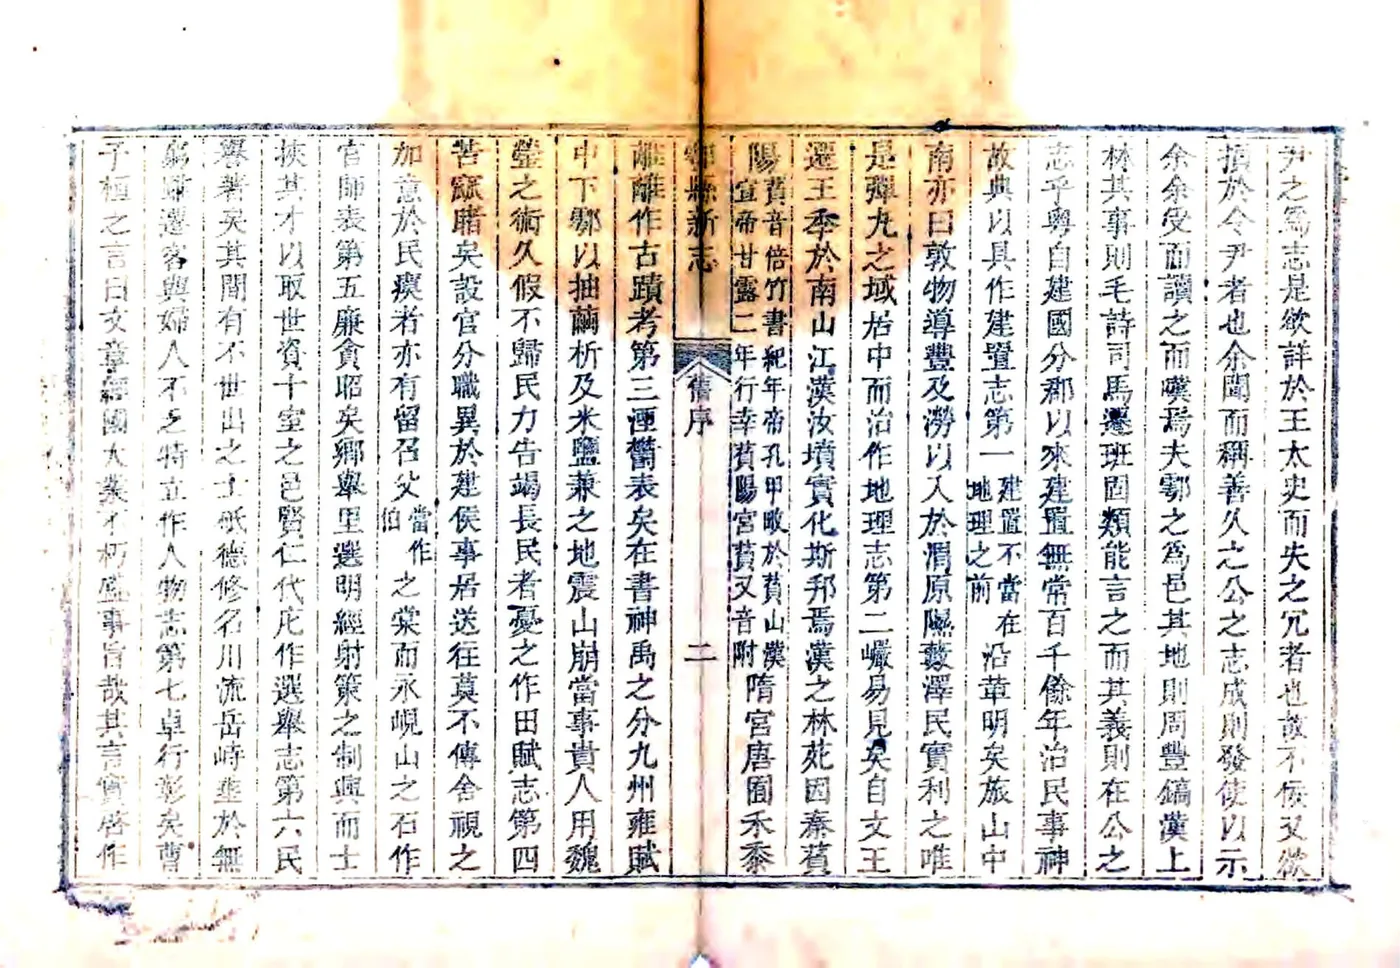 尹之為志是欲詳於王太史而失之冗者也故不佞又欲
損於令尹者也余聞而稱善久之公之志成則發使以示
余余受而讀之而嘆焉夫鄠之為邑其地則周豐鎬漢上
林其事則毛詩司馬遷班固類能言之而其義則在公之
志乎粵自建國分郡以來建置無常百千餘年治民事神
故典以具作建置志第一建置不當在地理之前沿革明矣旅山中
南亦曰敦物導豐及澇以入於渭原隰藪澤民實利之唯
是彈丸之域居中而治作地理志第二巖易見矣自文王
遷王季於南山江漢汝墳實化斯邦焉漢之林苑因秦萯
陽萯音倍竹書紀年帝孔甲畋於萯山漢宣帝甘露二年行幸萯陽宮萯又音附隋宮唐囿禾黍
鄠縣新志 舊序 二
離離作古蹟考第三湮鬱表矣在書神禹之分九州雍賦
中下鄠以抽繭析及米鹽兼之地震山崩當事貴人用魏
瑩之術久假不歸民力告竭長民者憂之作田賦志第四
苦窳睹矣設官分職異於建侯事居送往莫不傳舍視之
加意於民瘼者亦有留召父當作伯之棠而永峴山之石作
官師表第五廉貪昭矣鄉舉里選明經射策之制興而士
挾其才以取世資十室之邑賢仁代庀作選舉志第六民
譽著矣其間有不世出之士砥德修名川流岳峙垂於無
窮歸遷客與婦人不乏特立作人物志第七卓行彰矣曹
子桓之言曰文章經國大業不朽盛事旨哉其言實啓作